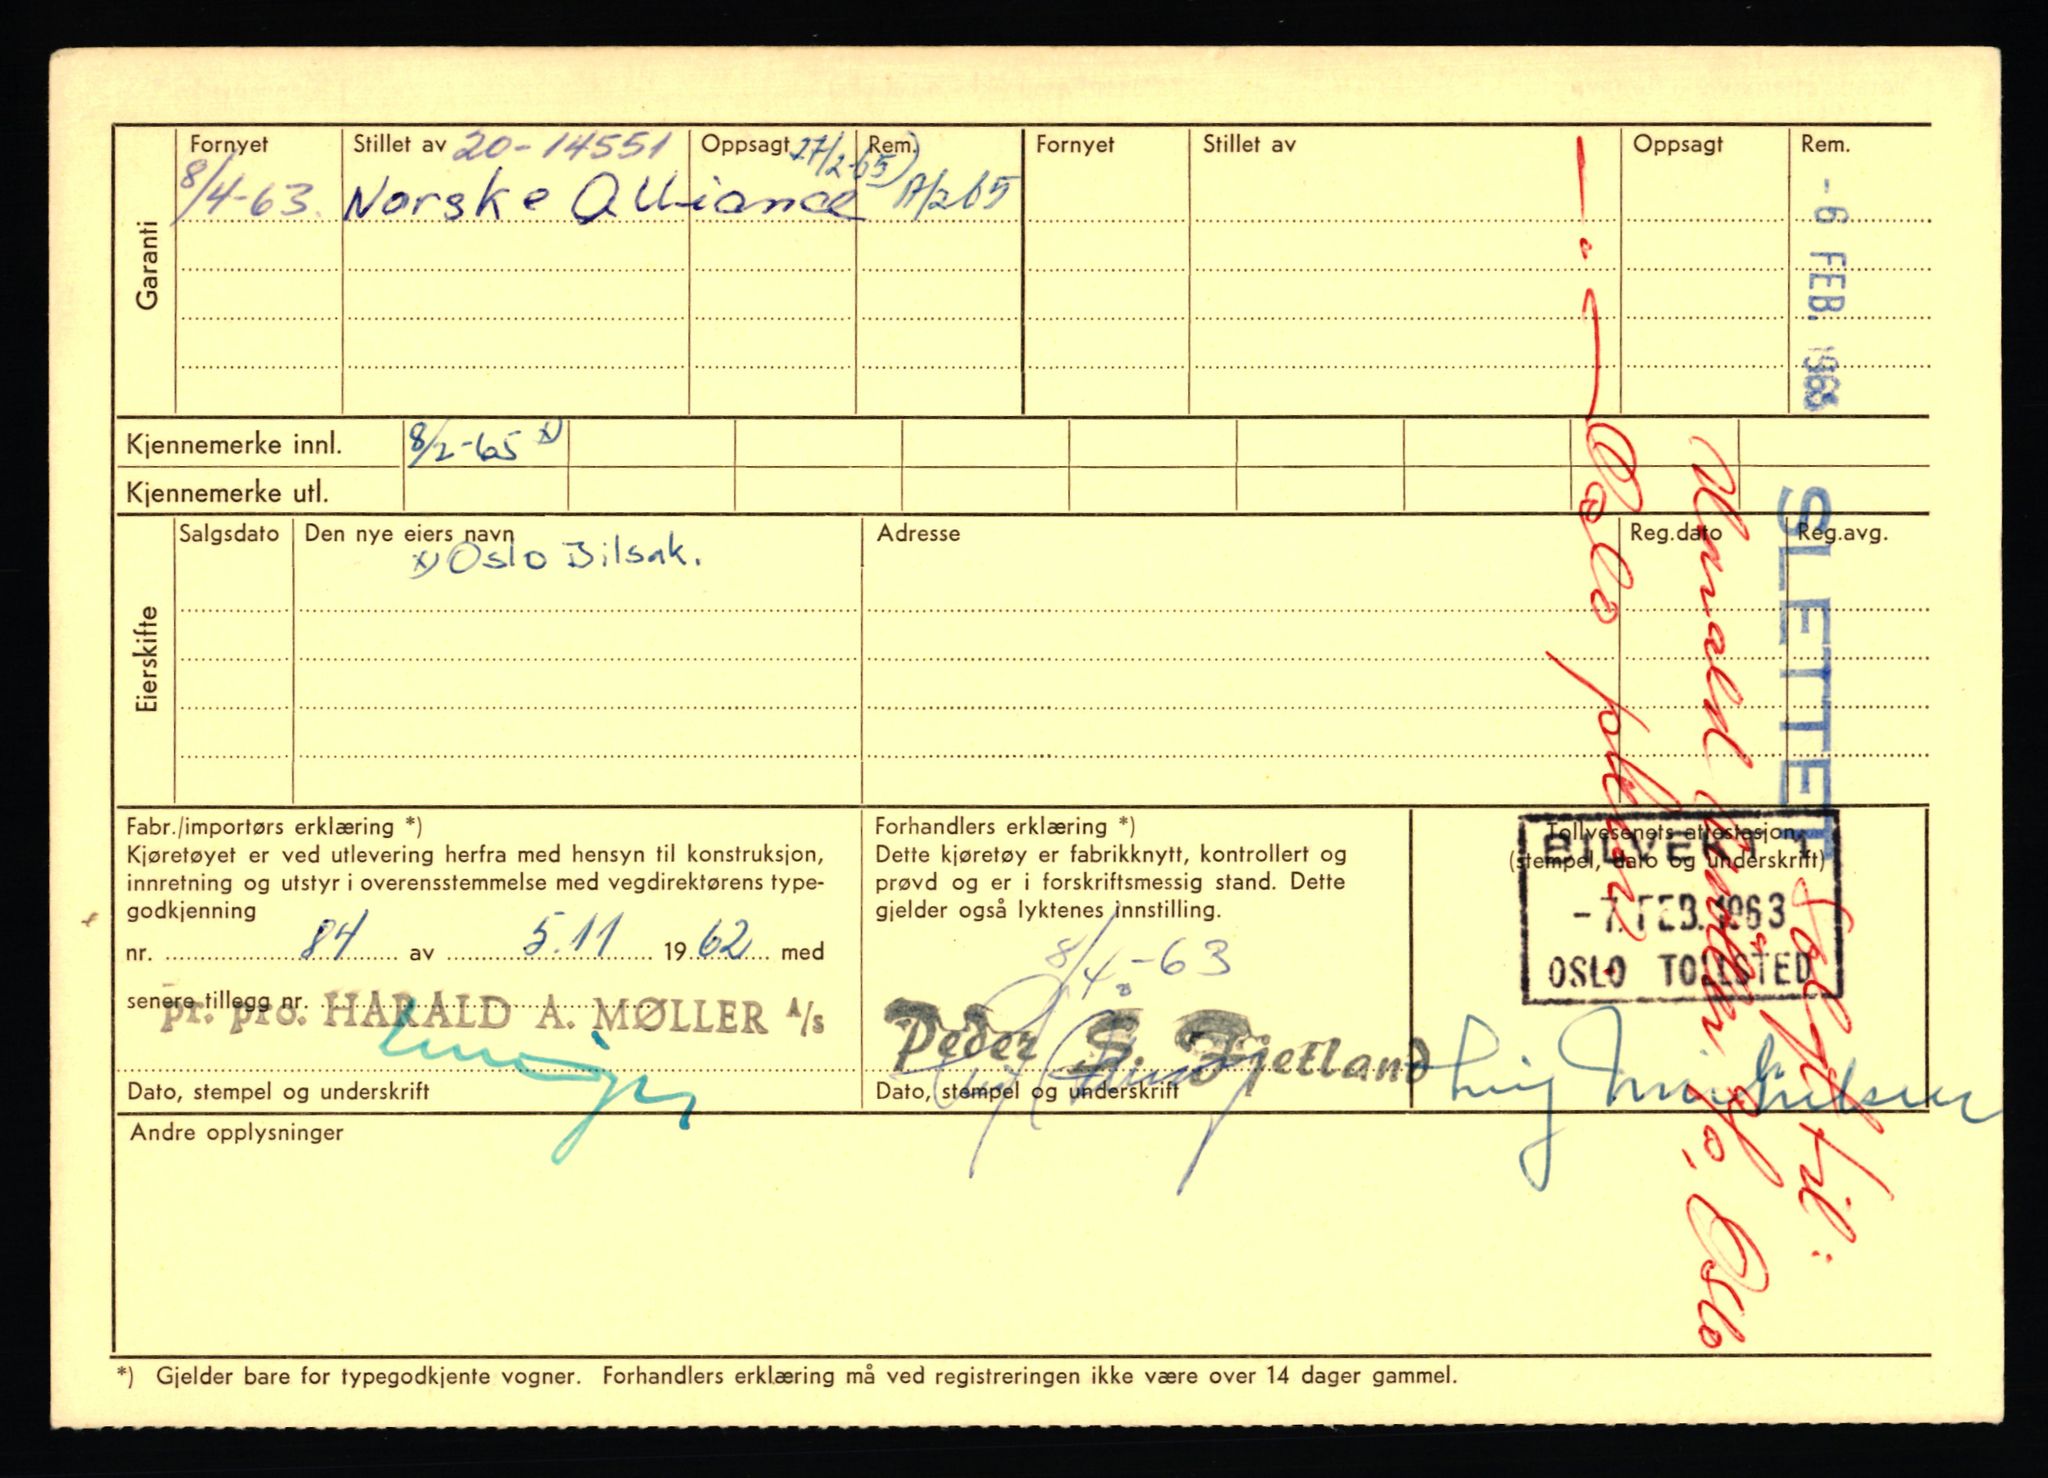 Garanti
Fornyet Stillet av 20-14551 Oppsagt 27/2-65) Rem. Fornyet Stillet av Oppsagt Rem.
8/4-63. Norske Alliance
- 6 FEB. 1965
Kjennemerke innl. 8/2-65 x)
Kjennemerke utl.
Eierskifte
Salgsdato Den nye eiers navn Adresse Reg.dato Reg.avg.
x) Oslo Bilsak.
SLETTET
Solgt til:
Harald Møller A/S, Oslo
—"— Oslo
Fabr./importørs erklæring *)
Kjøretøyet er ved utlevering herfra med hensyn til konstruksjon,
innretning og utstyr i overensstemmelse med vegdirektørens type-
godkjenning
nr. 84 av 5.11 1962 med
senere tillegg nr.
pr. pro. HARALD A. MØLLER A/S
Dato, stempel og underskrift
Forhandlers erklæring *)
Dette kjøretøy er fabrikknytt, kontrollert og
prøvd og er i forskriftsmessig stand. Dette
gjelder også lyktenes innstilling.
8/4-63
Peder S. Fjetland
Dato, stempel og underskrift
Tollvesenets attestasjon
(stempel, dato og underskrift)
BILVEKT 1
- 7. FEB. 1963
OSLO TOLLSTED
Andre opplysninger
*) Gjelder bare for typegodkjente vogner. Forhandlers erklæring må ved registreringen ikke være over 14 dager gammel.